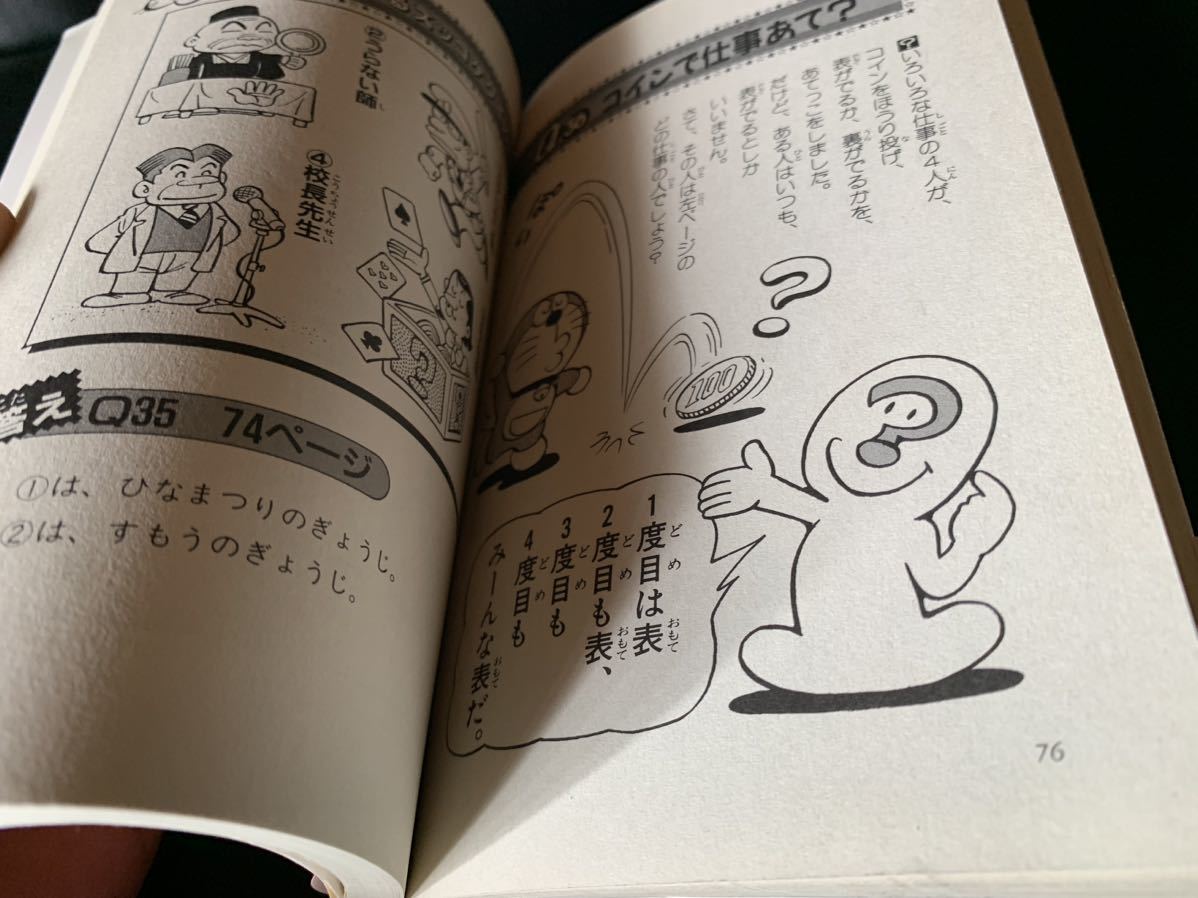 コインで仕事あて?
?いろいろな仕事の4人が、
コインをほうり投げ、
表がでるか、裏がでるかを、
あてっこをしました。
だけど、ある人はいつも、
表がでるとしか
いいません。
さて、その人は左ページの
どの仕事の人でしょう?
?
100
1度目は表
2度目も表、
3度目も
4度目も
みーんな表だ。
76
②うらない師
④校長先生
?
答え Q35 74ページ
①は、ひなまつりのぎょうじ。
②は、すもうのぎょうじ。